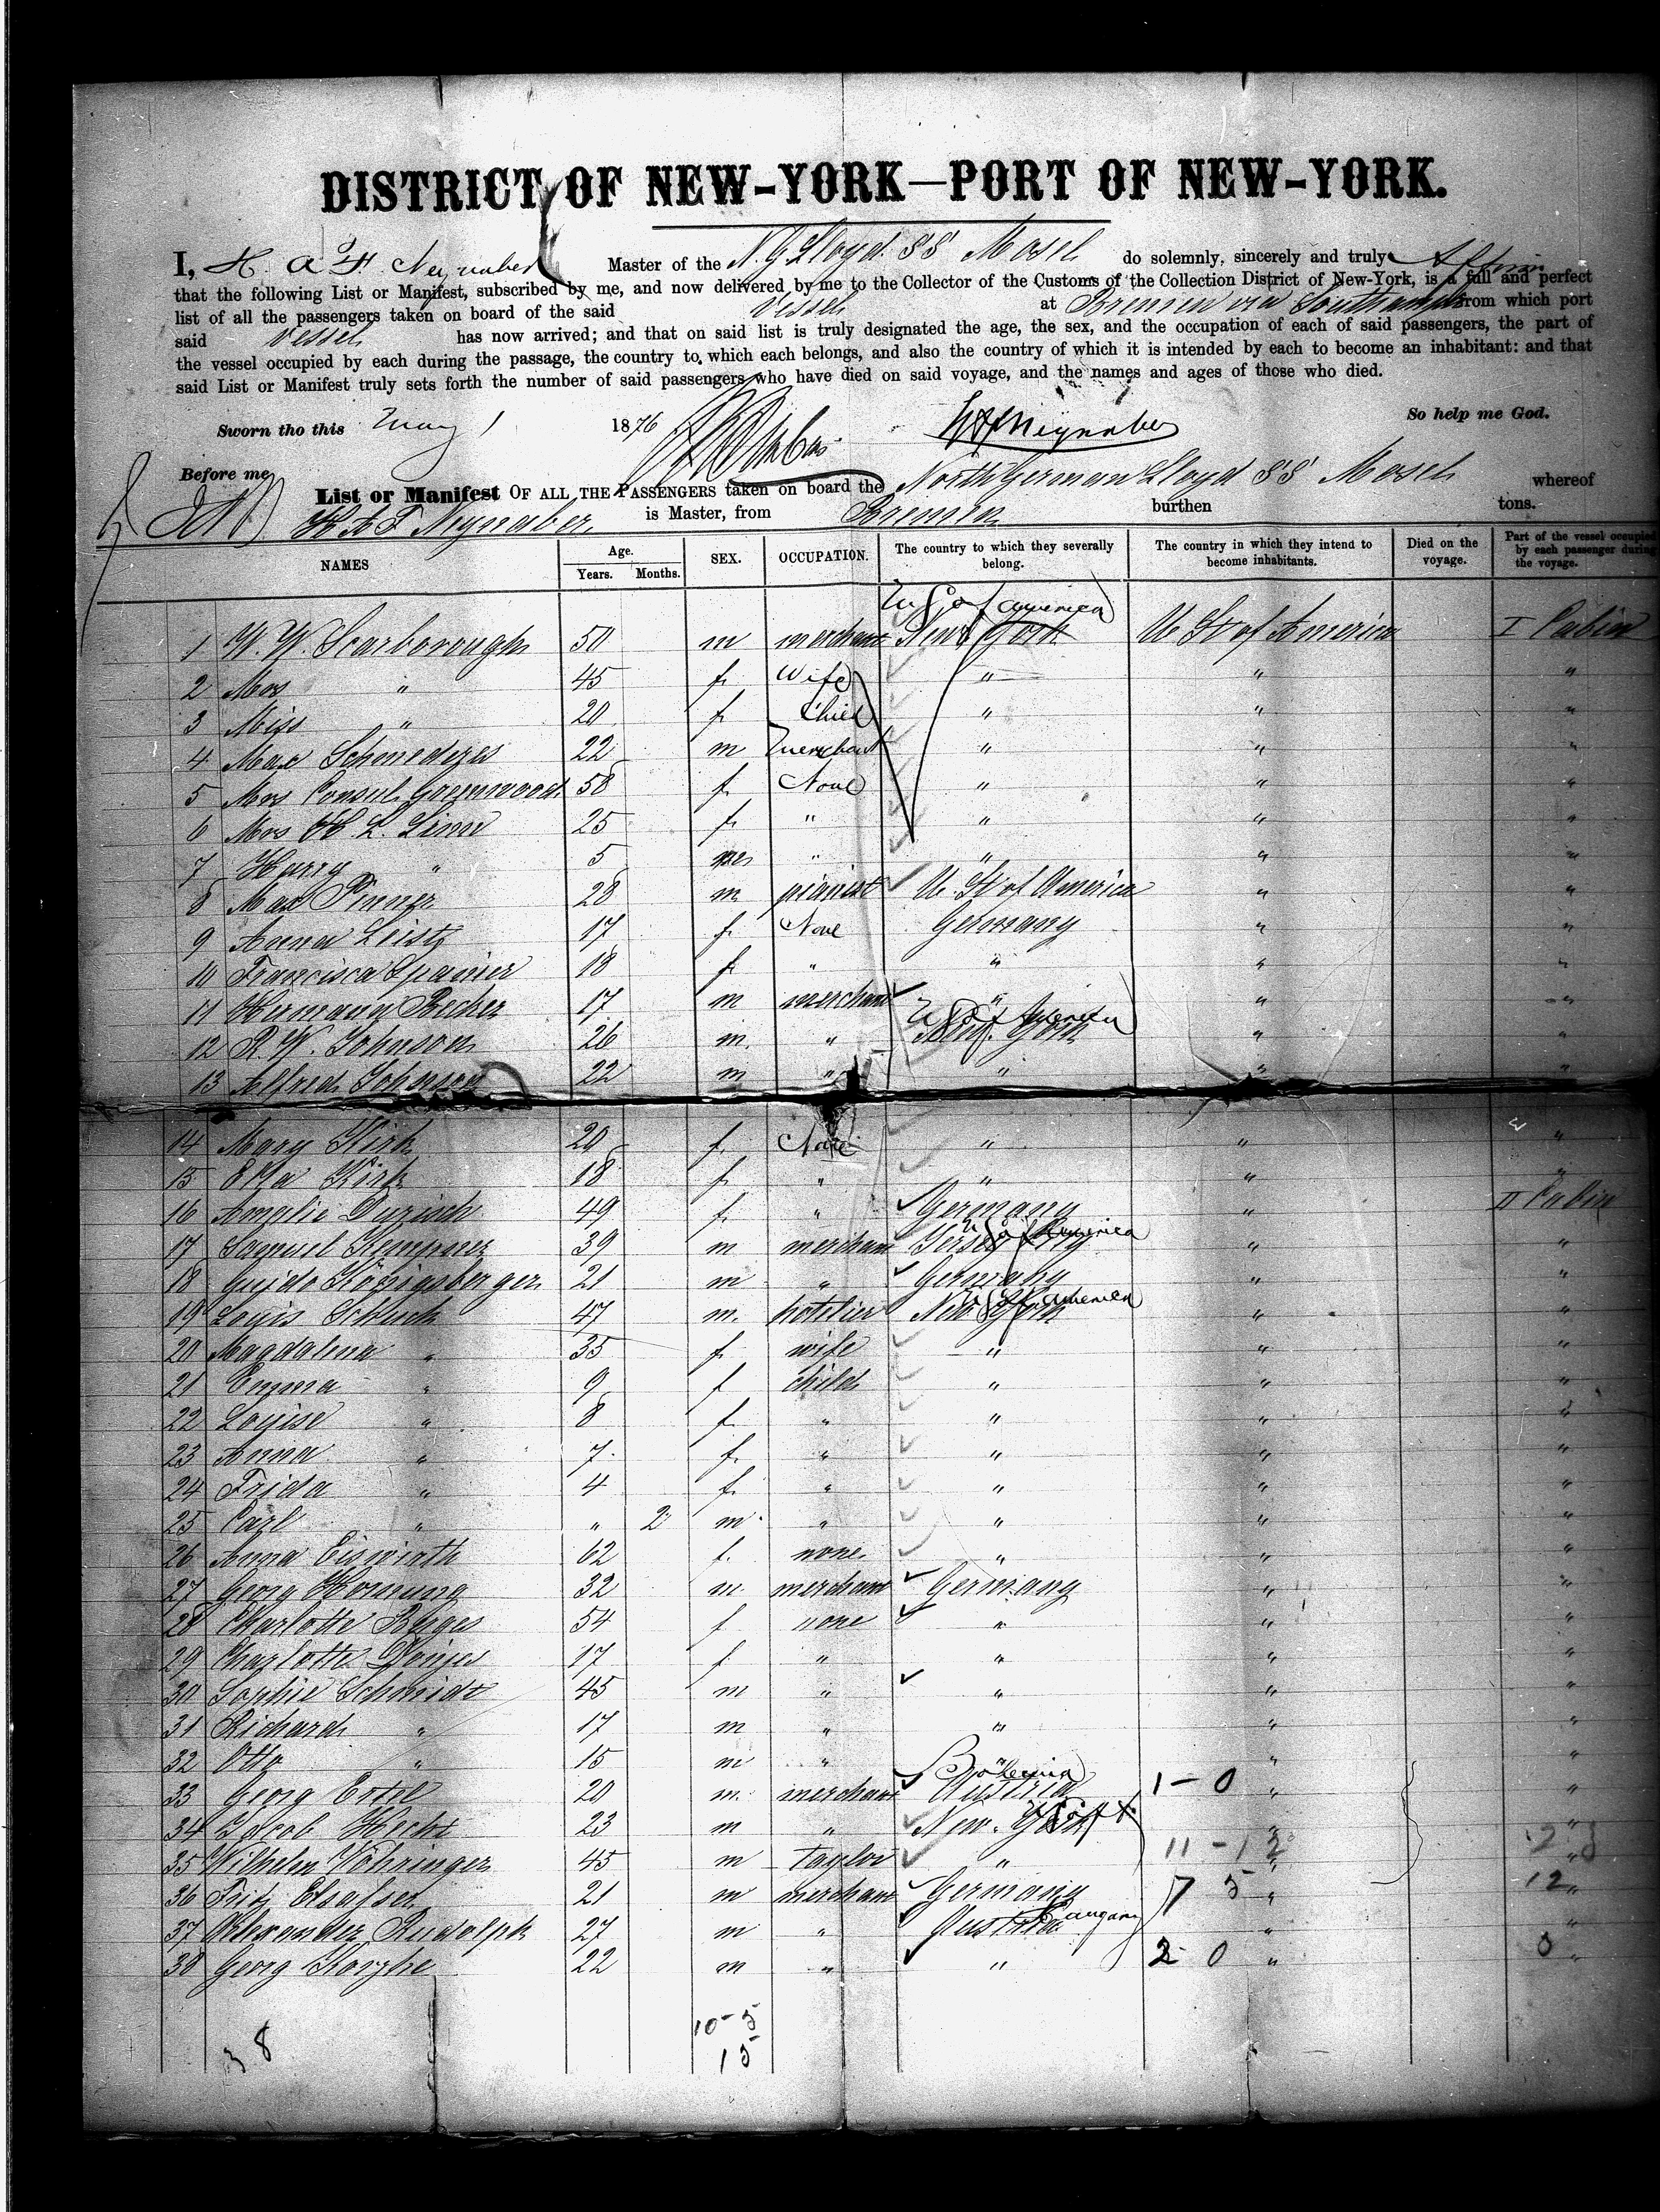 DISTRICT OF NEW-YORK—PORT OF NEW-YORK.
I, H. A. F. Neynaber Master of the N. G. Lloyd SS Mosel do solemnly, sincerely and truly Affirm
that the following List or Manifest, subscribed by me, and now delivered by me to the Collector of the Customs of the Collection District of New-York, is a full and perfect
list of all the passengers taken on board of the said Vessel at Bremen via Southampton from which port
said Vessel has now arrived; and that on said list is truly designated the age, the sex, and the occupation of each of said passengers, the part of
the vessel occupied by each during the passage, the country to which each belongs, and also the country of which it is intended by each to become an inhabitant: and that
said List or Manifest truly sets forth the number of said passengers who have died on said voyage, and the names and ages of those who died.
So help me God.
Sworn tho this May 1 1876 HAFNeynaber
Before me
List or Manifest OF ALL THE PASSENGERS taken on board the North German Lloyd SS Mosel whereof
H A F Neynaber is Master, from Bremen burthen tons.
NAMES Age. Years. Months. SEX. OCCUPATION. The country to which they severally belong. The country in which they intend to become inhabitants. Died on the voyage. Part of the vessel occupied by each passenger during the voyage.
U S of America
1 W. W. Scarborough 50 m merchant New York U. St of America I Cabin
2 Mrs " 45 f. Wife " " "
3 Miss " 20 f. Child " " "
4 Max 22 m Merchant " " "
5 Mrs Consul Greenwood 58 f. None " " "
6 Mrs H. L. 25 f. " " " "
7 Harry " 5 m " " " "
8 Max Pinner 28 m. pianist U. St of America " "
9 Anna Leist 17 f. None Germany " "
10 Francisca Spanier 18 f. " " " "
11 Hermann Becker 17 m merchant " " "
U S of America
12 R. W. Johnson 26 m. " New York " "
13 Alfred Johnson 22 m " " " "
14 Mary Kirk 20 f. None " " "
15 Ella Kirk 18 f. " " " "
16 Amalie 49 f. " Germany " II Cabin
17 Samuel Kempner 39 m merchant Jersey City U S of America " "
18 Guido Königsberger 21 m " Germany " "
19 Louis 47 m. hotelier New York U S of America " "
20 Magdalena " 35 f. wife " " "
21 Emma " 9 f child " " "
22 Louise " 8 f. " " " "
23 Anna " 7 f. " " " "
24 Frida " 4 f. " " " "
25 Carl " " 2 m " " " "
26 Anna Eiswirth 62 f. none " " "
27 Georg Hornung 32 m. merchant Germany " "
28 Charlotte 54 f none " " "
29 Charlotte 17 f " " " "
30 Sophie Schmidt 45 m " " " "
31 Richard " 17 m " " " "
32 Otto " 15 m " " " "
Bohemia
33 Georg Ertel 20 m. merchant Austria 1 - 0 " "
34 Jacob Hecht 23 m " New York " "
35 Wilhelm Vöhringer 45 m Taylor " 11 - 12 " "
36 Fritz Elsasser 21 m merchant Germany 7 5 " 12 "
37 Alexander Rudolph 27 m " Austria Hungary " "
38 Georg 22 m " " 2 - 0 " 0 "
38
10 - 5
15